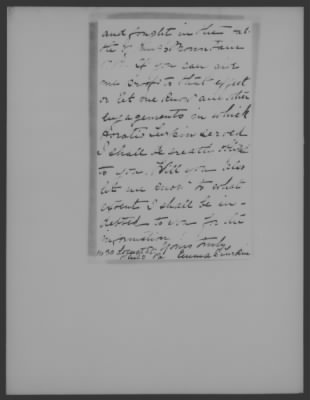 and fought in the bat
tle of
1777. If you can give
me proof to that effect
or let me know any other
engagements in which
Larkin served
I shall be greatly
to you. Will you
let me know to what
extent I shall be in-
debted to you for the
information
Yours truly
Emma